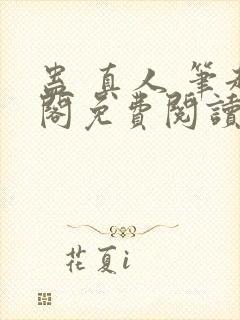 蠱真人 筆趣
閣免費閱讀
花夏i